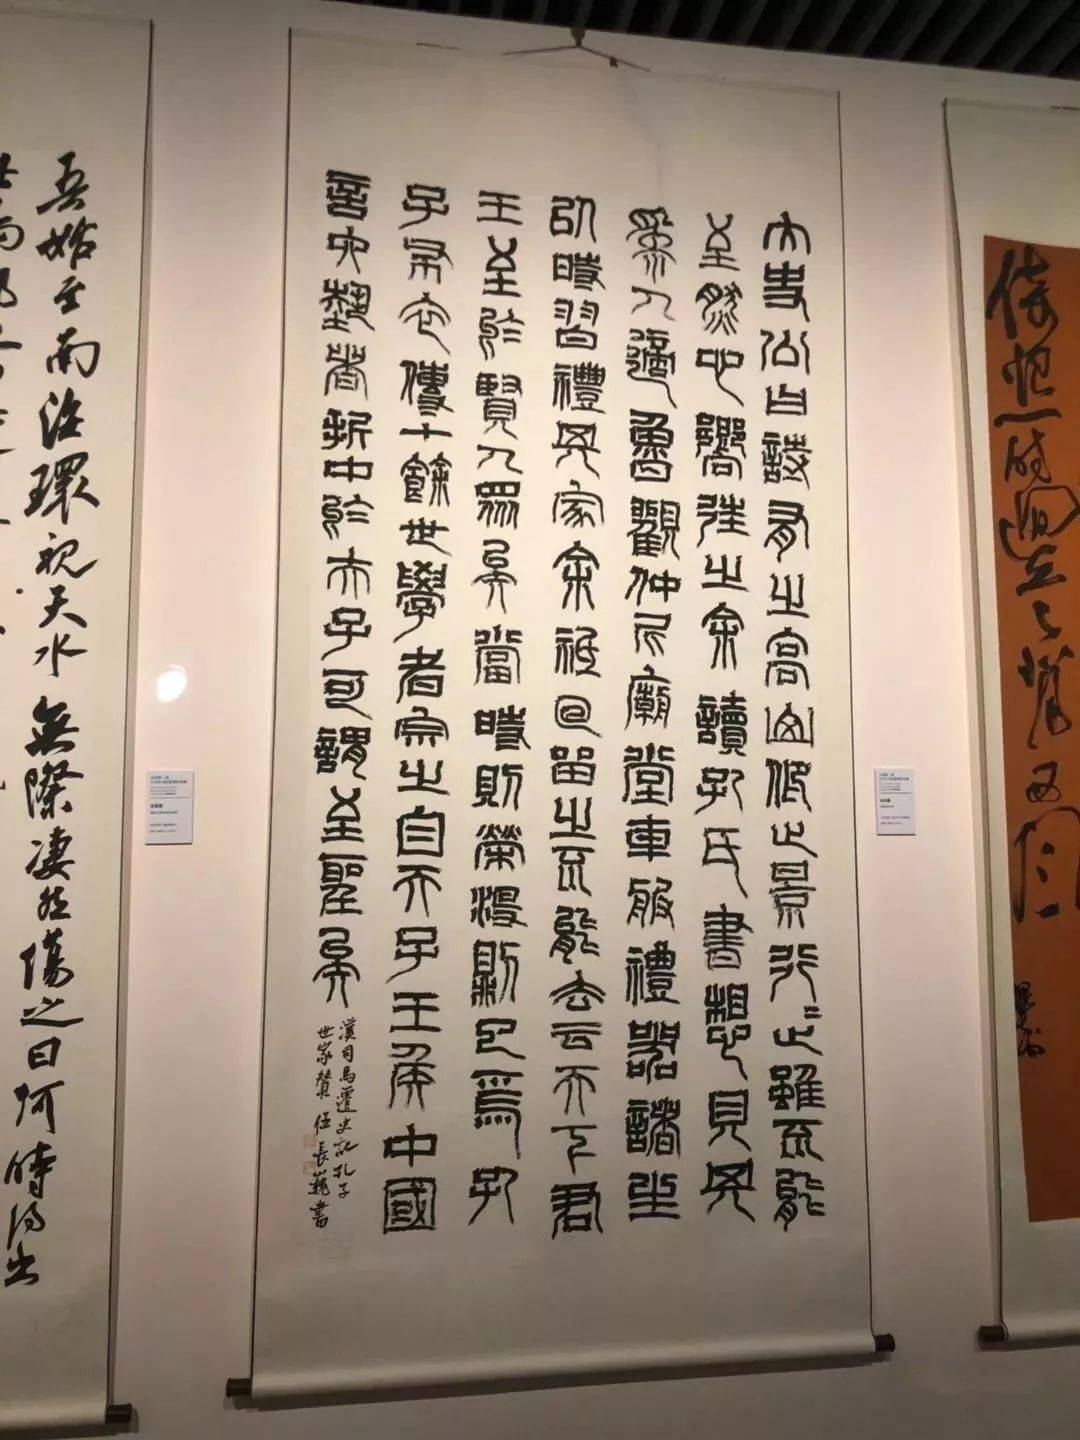 大史公曰詩有之高山仰止景行〻止雖不能
至然心嚮往之余讀孔氏書想見其
爲人適魯觀仲尼廟堂車服禮器諸生
以時習禮其家余祗回留之不能去云天下君
王至於賢人眾矣當時則榮沒則已焉孔
子布衣傳十餘世學者宗之自天子王侯中國
言六藝者折中於夫子可謂至聖矣
漢司馬遷史記孔子
世家贊 任長書
吾始至南海環視天水無際淒然傷之曰何時得出